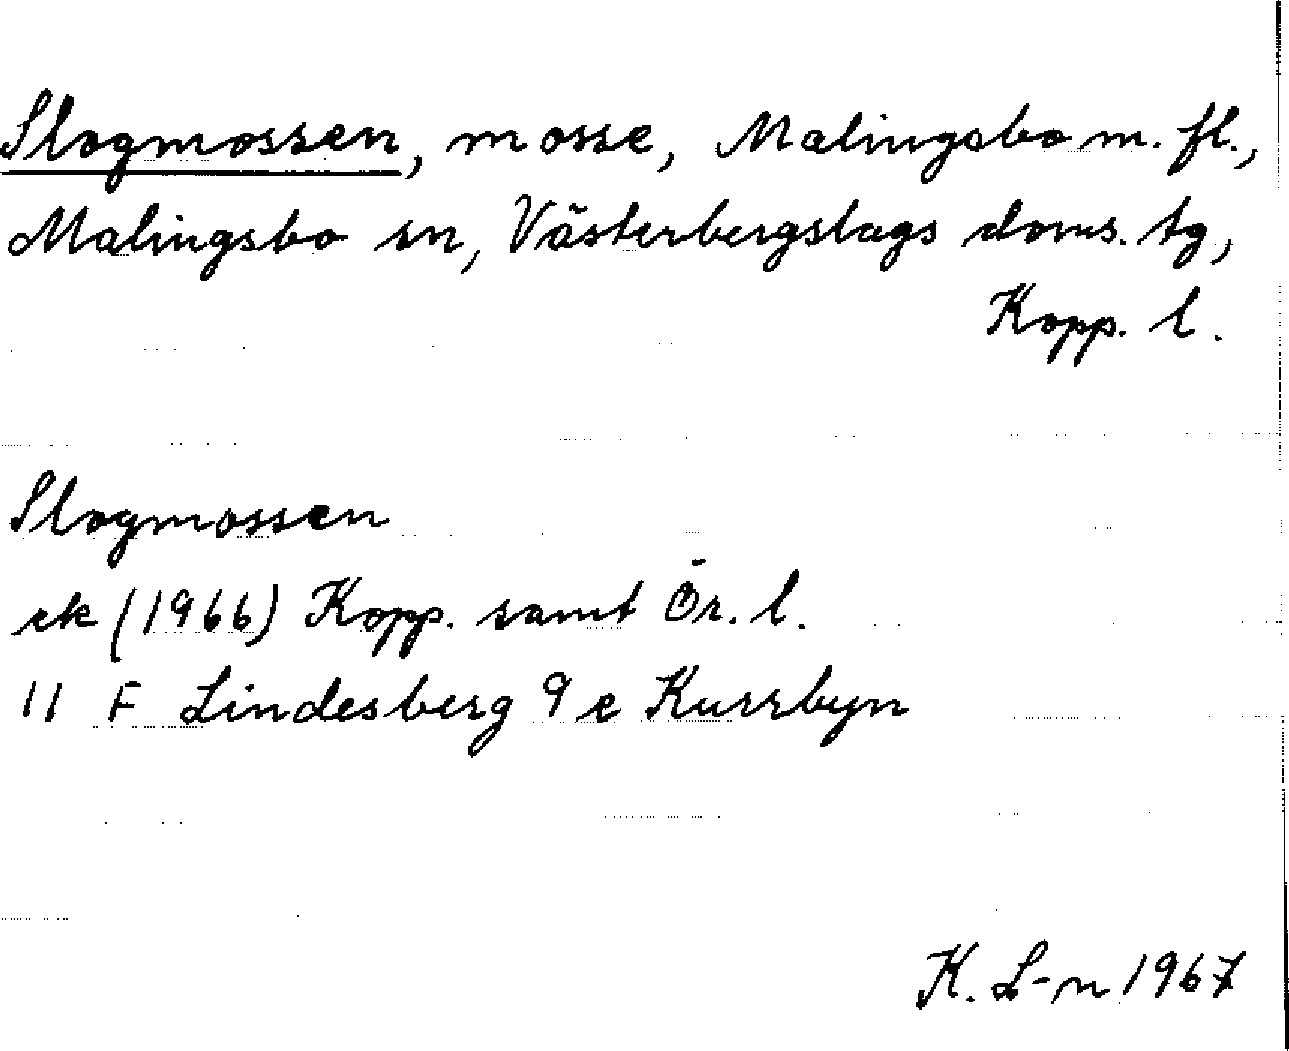 Slogmossen, mosse, Malingsbo m. fl.,
Malingsbo sn, Västerbergslags doms. tg,
Kopp. l.
Slogmossen
ek (1966) Kopp. samt Ör. l.
11 F Lindesberg 9 e Kurrbyn
K. L-n 1967